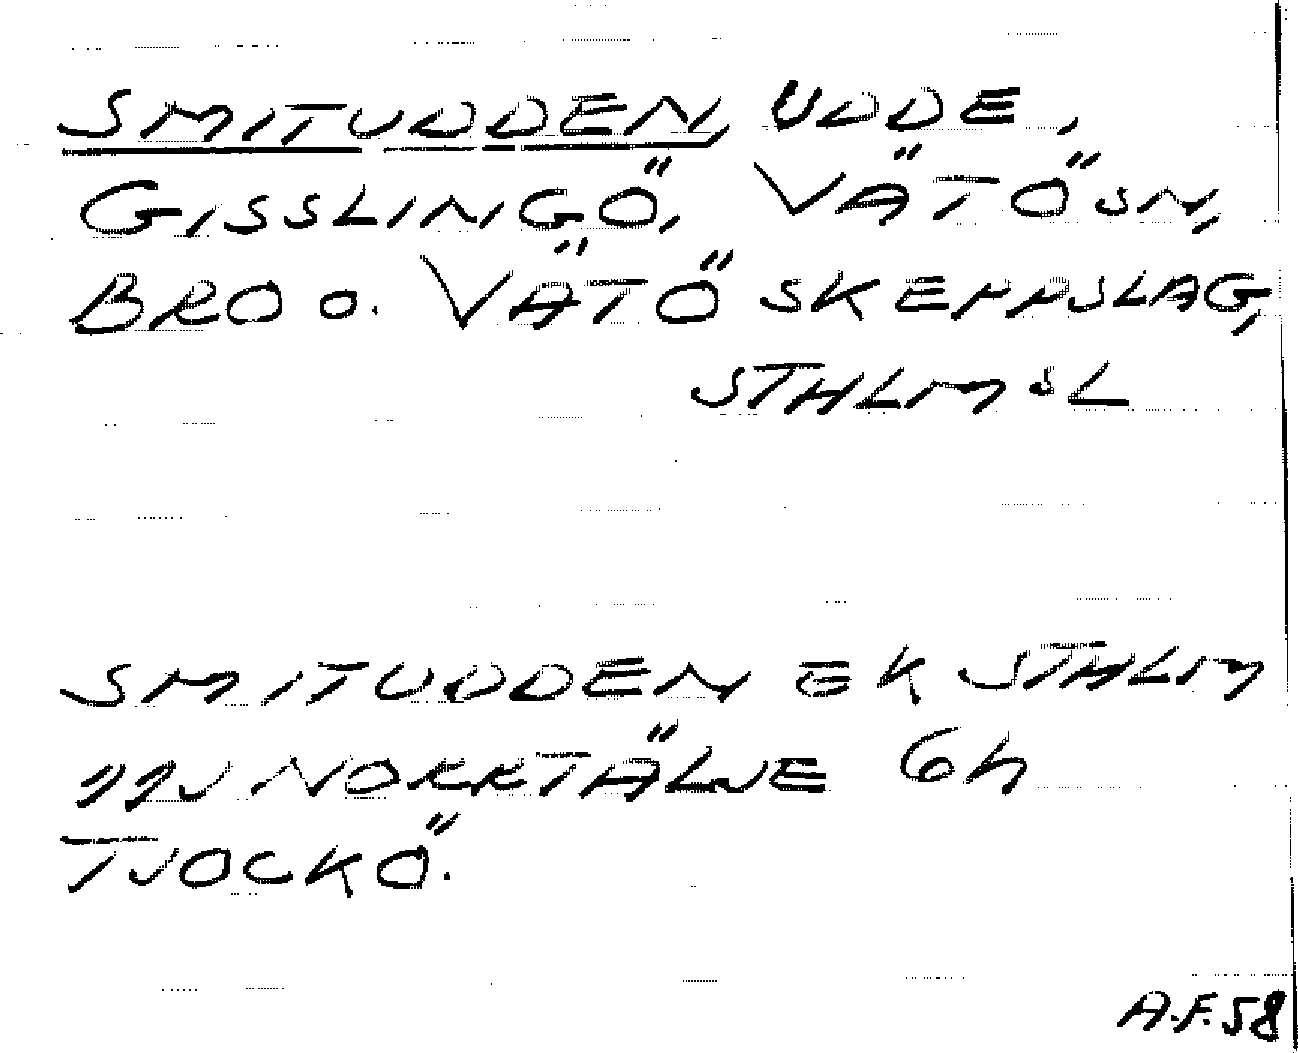 SMITUDDEN, UDDE,
GISSLINGÖ, VÄTÖ SN,
BRO O. VÄTÖ SKEPPSLAG,
STHLMSL
SMITUDDEN EK STHLM
11J NORRTÄLJE 6h
TJOCKÖ.
A.F.58